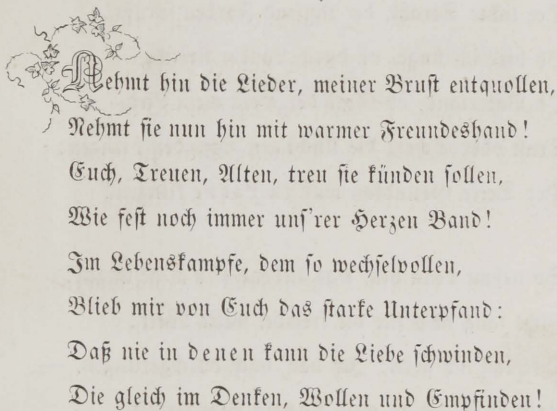 Nehmt hin die Lieder, meiner Brust entquollen,
Nehmt sie nun hin mit warmer Freundeshand!
Euch, Treuen, Alten, treu sie künden sollen,
Wie fest noch immer uns'rer Herzen Band!
Im Lebenskampfe, dem so wechselvollen,
Blieb mir von Euch das starke Unterpfand:
Daß nie in denen kann die Liebe schwinden,
Die gleich im Denken, Wollen und Empfinden!